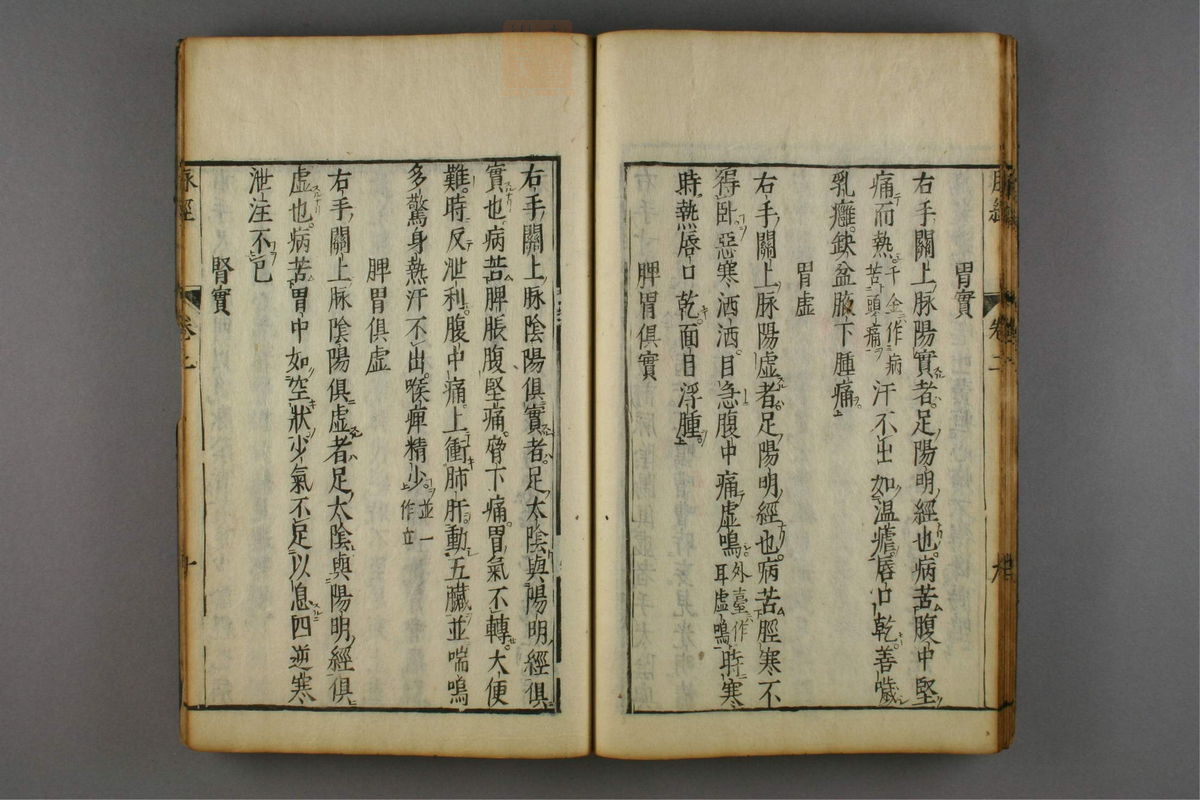 胃實
右手關上脉陽實者足陽明經也病苦腹中堅
痛而熱千金作病苦頭痛汗不出如温瘧唇口乾善噦
乳癰缺盆腋下腫痛
胃虚
右手關上脉陽虚者足陽明經也病苦脛寒不
得卧惡寒洒洒目急腹中痛虚鳴外臺作耳虚鳴時寒
時熱唇口乾面目浮腫
脾胃俱實
右手關上脉陰陽俱實者足太陰與陽明經俱
實也病苦脾脹腹堅痛脅下痛胃氣不轉大便
難時反泄利腹中痛上衝肺肝動五臟並喘鳴
多驚身熱汗不出喉痺精少並一作立
脾胃俱虚
右手關上脉陰陽俱虚者足太陰與陽明經俱
虚也病苦胃中如空狀少氣不足以息四逆寒
泄注不已
腎實
脉經
卷二
十